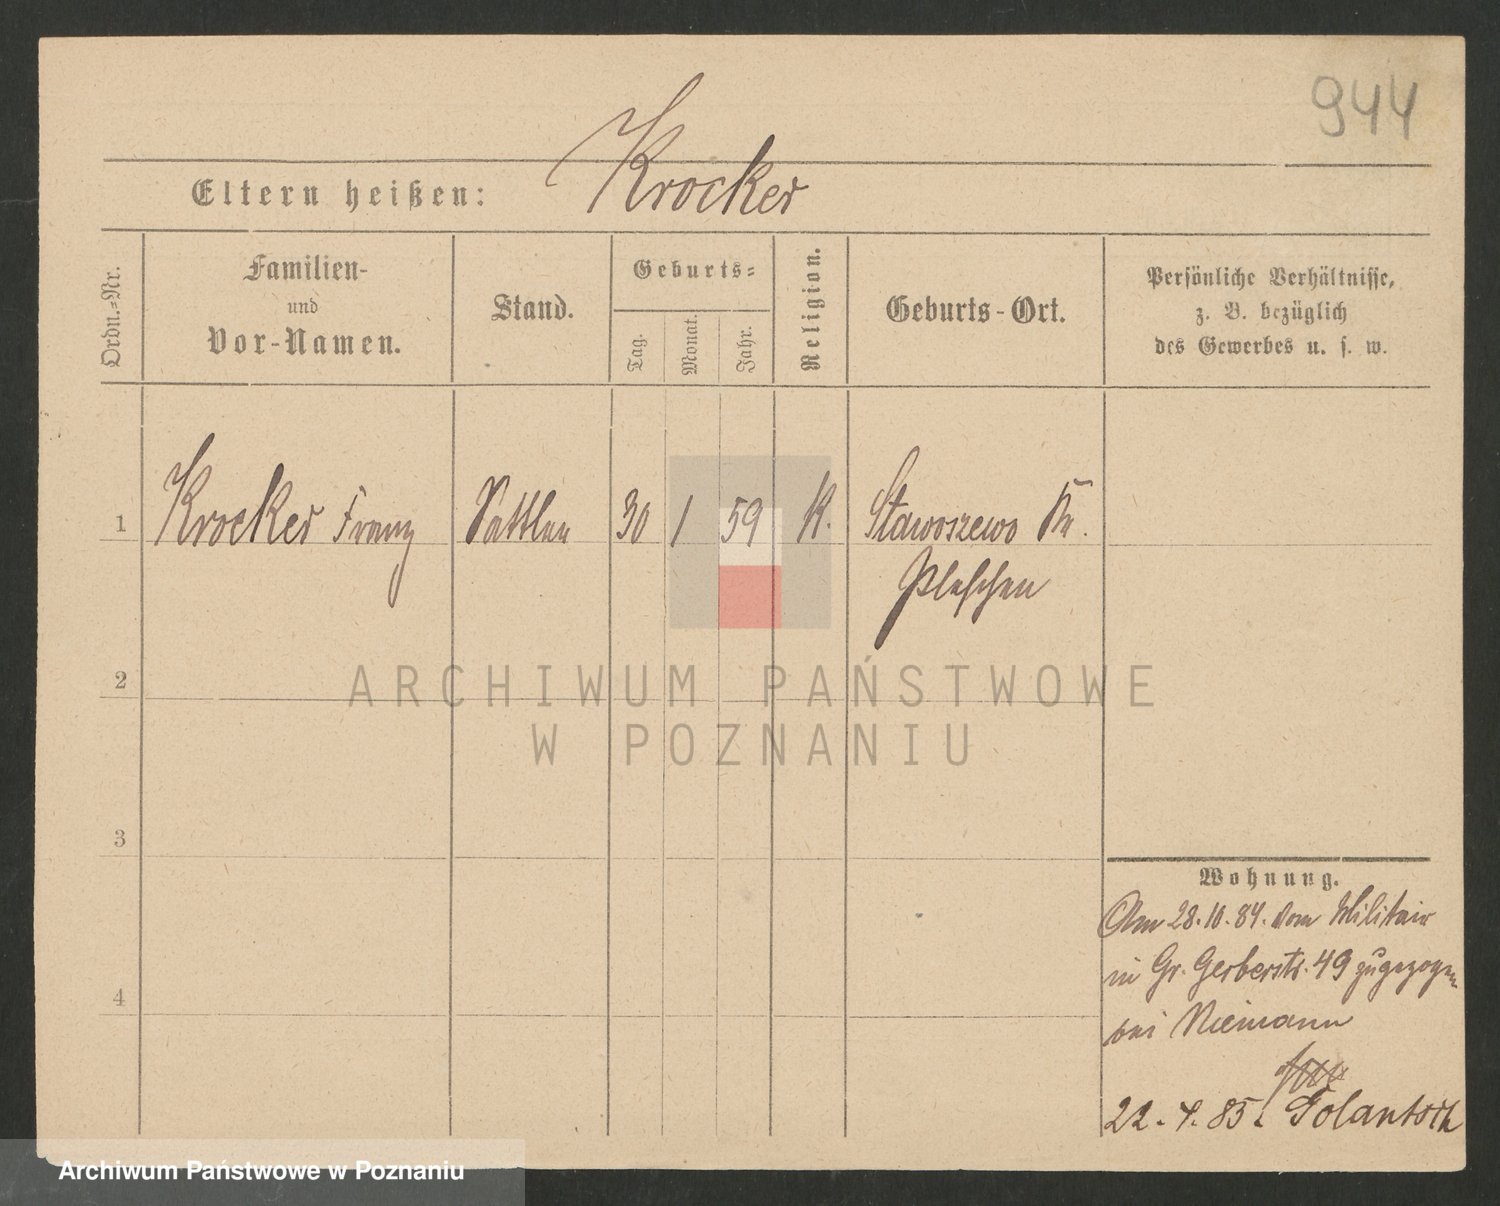 944
Eltern heißen: Krocker
Ordn.-Nr.
Familien-
und
Vor-Namen.
Stand.
Geburts-
Tag.
Monat.
Jahr.
Religion.
Geburts-Ort.
Persönliche Verhältnisse,
z. B. bezüglich
des Gewerbes u. s. w.
1 Krocker Franz Sattler 30 1 59 K. Stawoszewo Kr.
Pleschen
2
3
4
Wohnung.
Am 28.10.84. vom Militair
in Gr. Gerberstr. 49 zugezogen
bei Niemann
22. 4. 85. Golantsch
ARCHIWUM PAŃSTWOWE
W POZNANIU
Archiwum Państwowe w Poznaniu